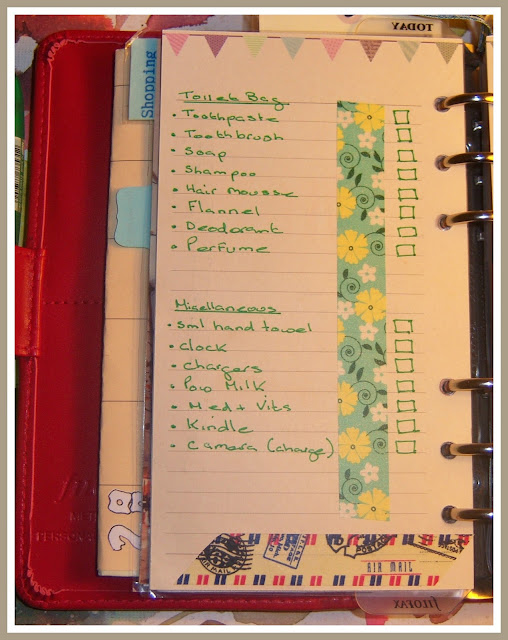 TODAY
Shopping
Toilet Bag
• Toothpaste
• Toothbrush
• Soap
• Shampoo
• Hair mousse
• Flannel
• Deodorant
• Perfume
Miscellaneous
• sml hand towel
• Clock
• Chargers
• Pow Milk
• Med + Vits
• Kindle
• Camera (charge)
AIR MAIL
filofax